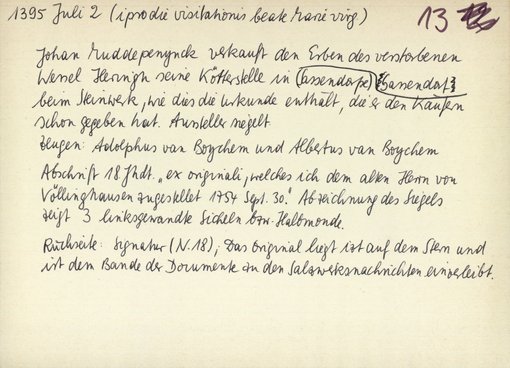 1395 Juli 2 (ipso die visitationis beate Marie virg) 13
Johan Muddepenynck verkauft den Erben des verstorbenen
Wessel Hennigh seine Kötterstelle in (assendorpe) {Sassendorf}
beim Steinwerk, wie dies die Urkunde enthält, die er den Käufern
schon gegeben hat. Aussteller siegelt
Zeugen: Adolphus van Boychem und Albertus van Boychem
Abschrift 18 Jhdt. "ex originali, welches ich dem alten Herrn von
Völlinghausen zugestellet 1754 Sept. 30." Abzeichnung des Siegels
zeigt 3 linksgewandte Sicheln bzw. Halbmonde.
Rückseite: Signatur (N. 18); Das Original liegt itzt auf dem Stern und
ist dem Bande der Documente zu den Salzwerksnachrichten einverleibt.